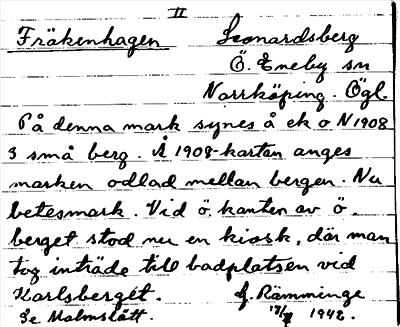 II
Fräkenhagen Leonardsberg
Ö. Eneby sn
Norrköping. Ögl.
På denna mark synes å ek o N 1908
3 små berg. Å 1908-kartan anges
marken odlad mellan bergen. Nu
betesmark. Vid ö. kanten av ö.
berget stod nu en kiosk, där man
tog inträde till badplatsen vid
Karlsberget. J. Rämminge
Se Malmslätt. 1942.